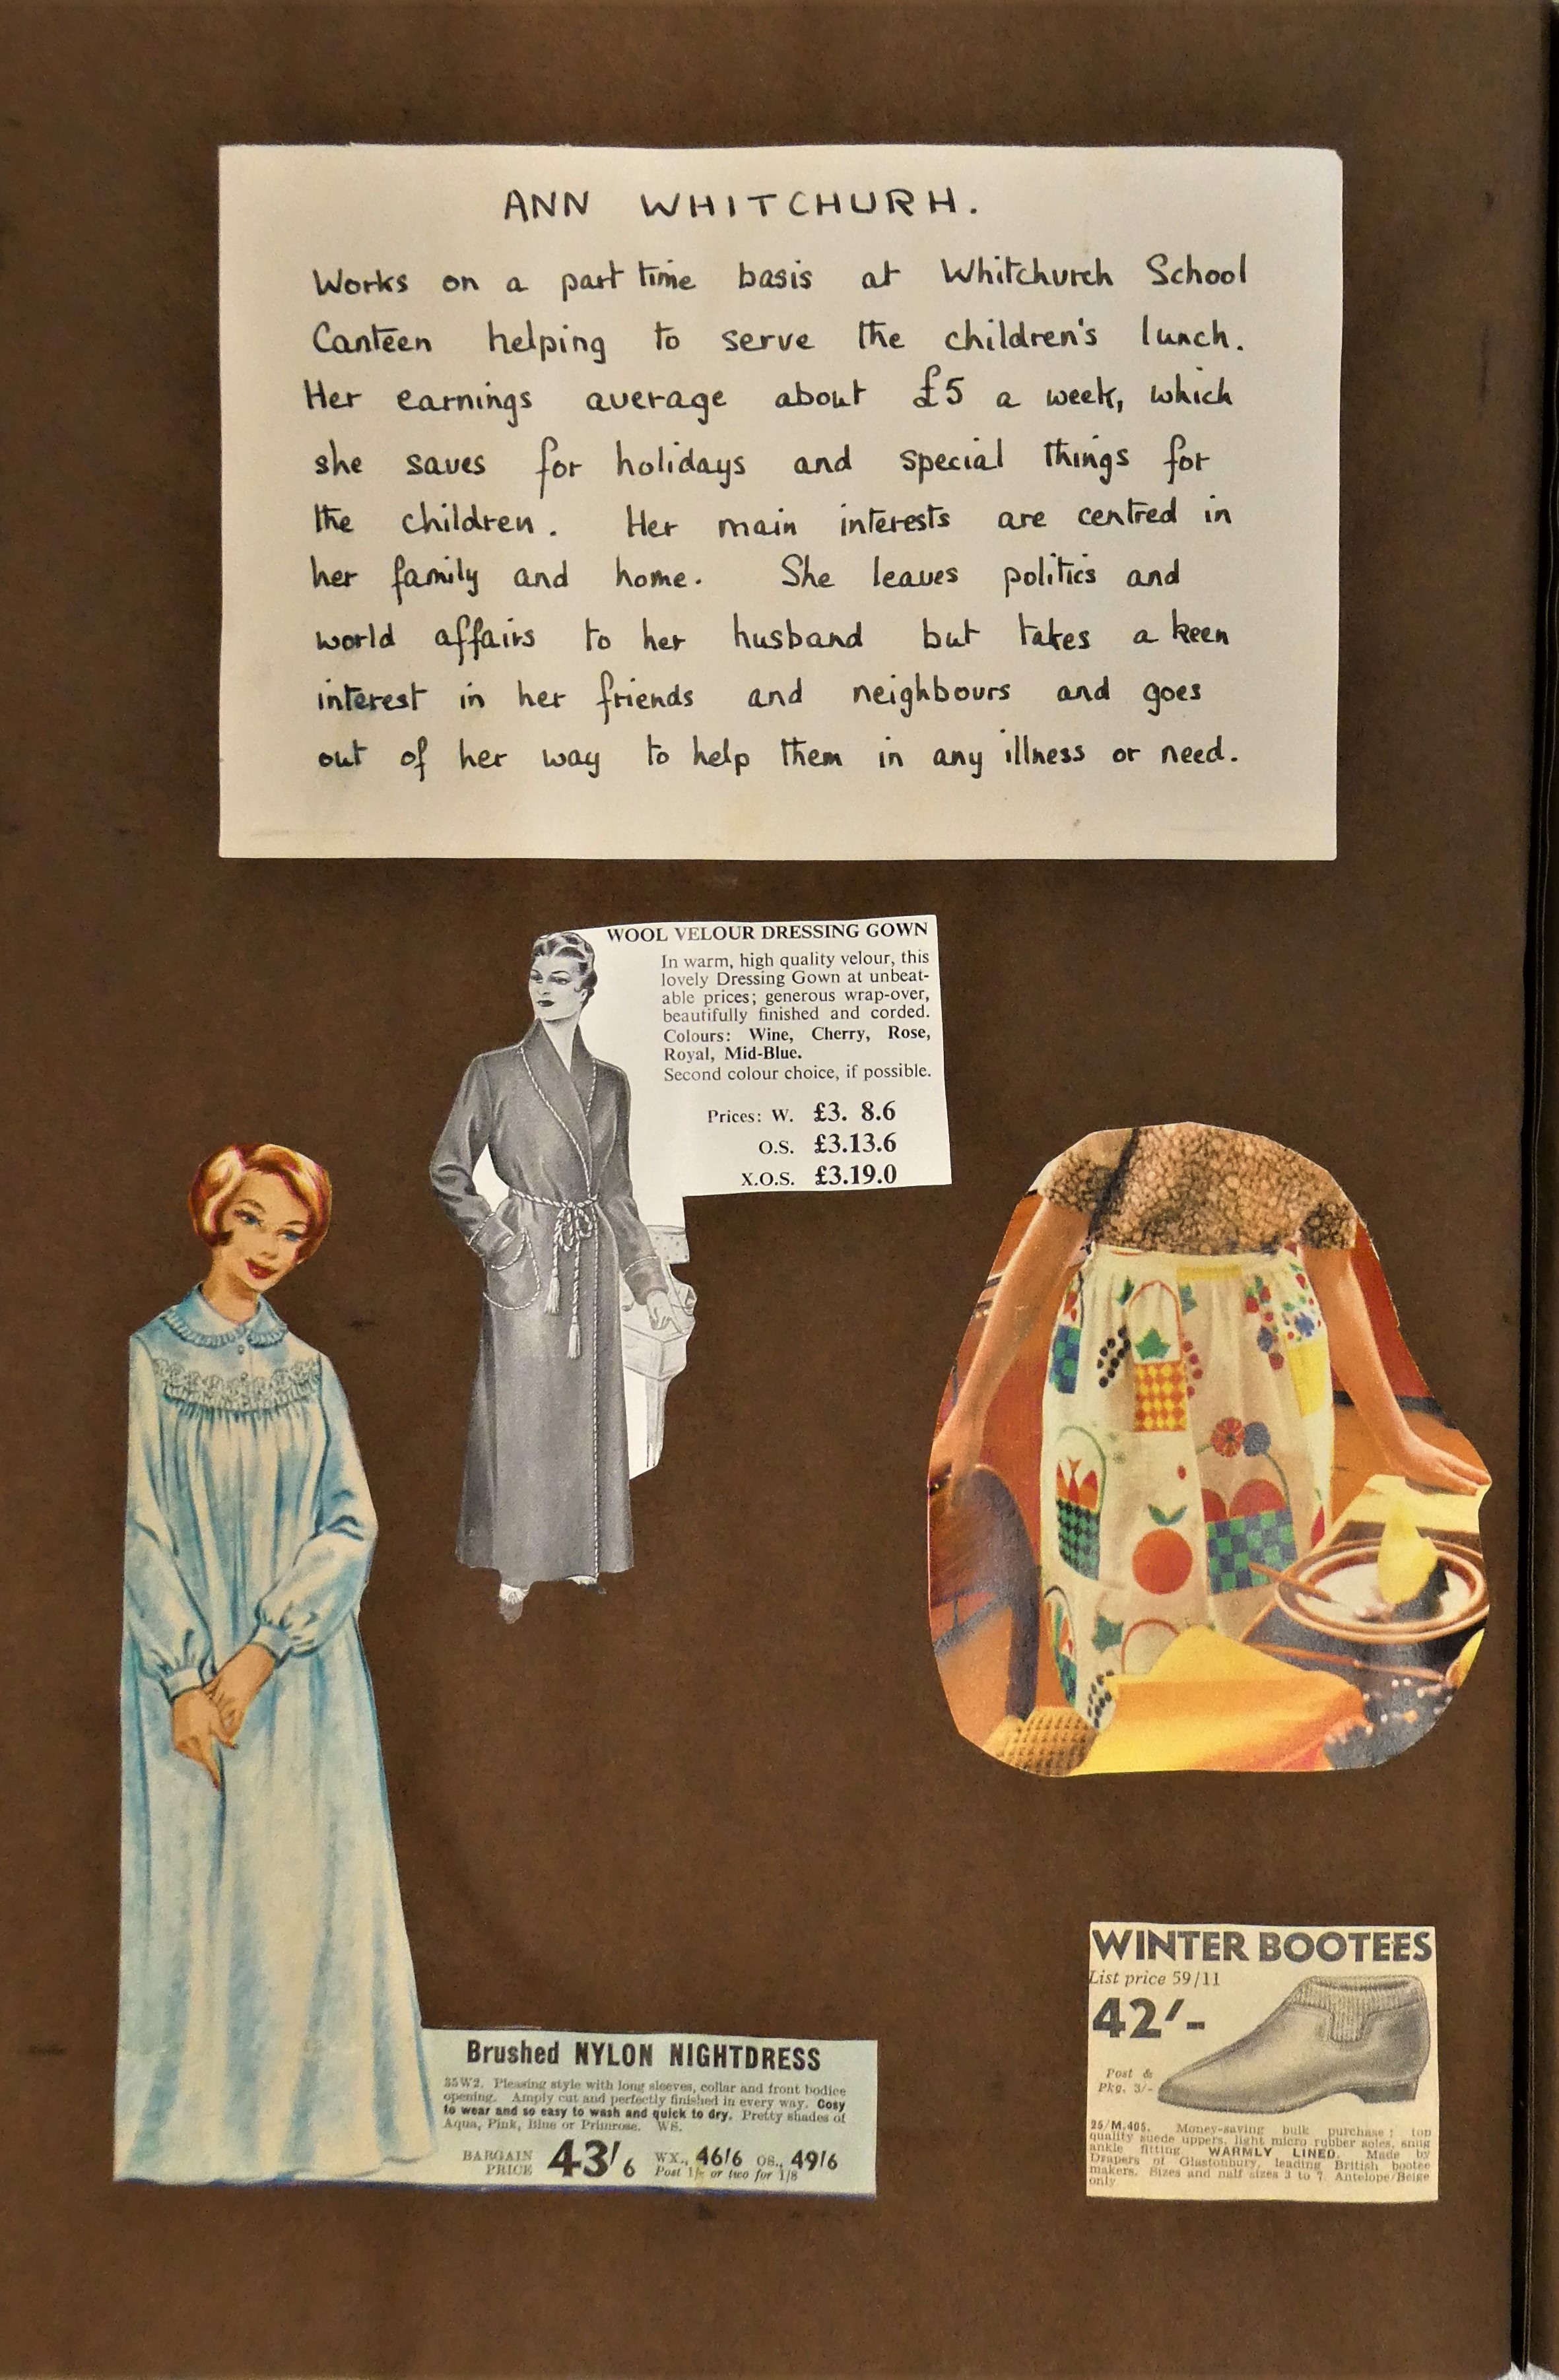 ANN WHITCHURH.
Works on a part time basis at Whitchurch School
Canteen helping to serve the children's lunch.
Her earnings average about £5 a week, which
she saves for holidays and special things for
the children. Her main interests are centred in
her family and home. She leaves politics and
world affairs to her husband but takes a keen
interest in her friends and neighbours and goes
out of her way to help them in any illness or need.
WOOL VELOUR DRESSING GOWN
In warm, high quality velour, this
lovely Dressing Gown at unbeat-
able prices; generous wrap-over,
beautifully finished and corded.
Colours: Wine, Cherry, Rose,
Royal, Mid-Blue.
Second colour choice, if possible.
Prices: W. £3. 8.6
O.S. £3.13.6
X.O.S. £3.19.0
Brushed NYLON NIGHTDRESS
35W2. Pleasing style with long sleeves, collar and front bodice
opening. Amply cut and perfectly finished in every way. Cosy
to wear and so easy to wash and quick to dry. Pretty shades of
Aqua, Pink, Blue or Primrose. WS.
BARGAIN PRICE 43/6 WX., 46/6 OS., 49/6
Post 1/- or two for 1/8
WINTER BOOTEES
List price 59/11
42/-
Post &
Pkg. 3/-
25/M.405. Money-saving bulk purchase! top
quality suede uppers, light micro rubber soles, snug
ankle fitting. WARMLY LINED. Made by
Drapers of Glastonbury, leading British bootee
makers. Sizes and half sizes 3 to 7. Antelope/Beige
only